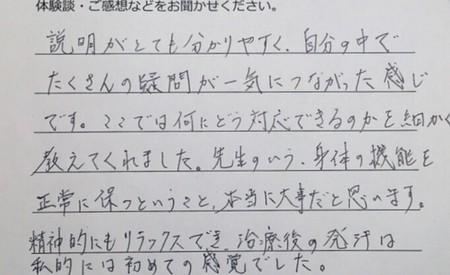 体験談・ご感想などをお聞かせください。
説明がとても分かりやすく、自分の中で
たくさんの疑問が一気につながった感じ
です。ここでは何にどう対応できるのかを細かく
教えてくれました。先生のいう、身体の機能を
正常に保つということ、本当に大事だと思います。
精神的にもリラックスでき、治療後の発汗は
私的には初めての感覚でした。